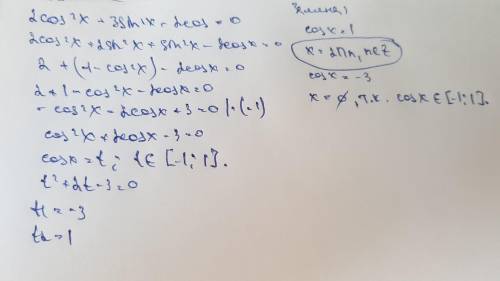 2cos²x + 3sin²x - 2cos = 0
2cos²x + 2sin²x + sin²x - 2cosx = 0
2 + (1 - cos²x) - 2cosx = 0
2 + 1 - cos²x - 2cosx = 0
- cos²x - 2cosx + 3 = 0 | · (-1)
cos²x + 2cosx - 3 = 0
cosx = t ; t ∈ [-1; 1].
t² + 2t - 3 = 0
t1 = -3
t2 = 1
Замена;
cosx = 1
x = 2πn, n∈Z
cosx = -3
x = ∅, т.к. cosx ∈ [-1; 1].